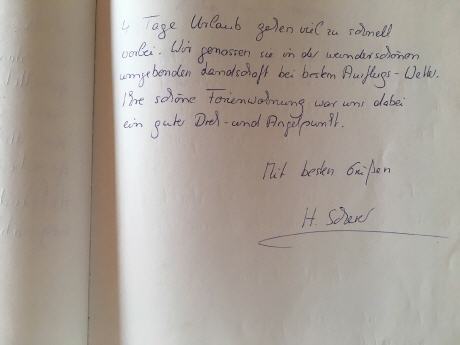 4 Tage Urlaub gehen viel zu schnell
vorbei. Wir genossen sie in der wunderschönen
umgebenden Landschaft bei bestem Ausflugs-Wetter.
Ihre schöne Ferienwohnung war uns dabei
ein guter Dreh- und Angelpunkt.
Mit besten Grüßen
H.